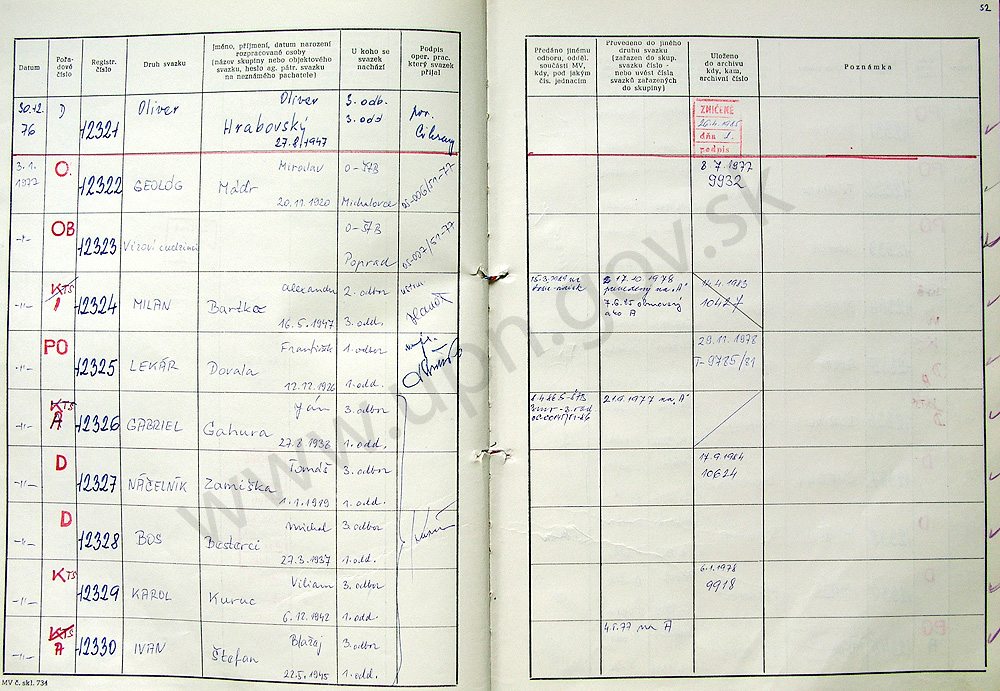 52
Datum
Pořa-
dové
číslo
Registr.
číslo
Druh svazku
Jméno, příjmení, datum narození
rozpracované osoby
(název skupiny nebo objektového
svazku, heslo ag. pátr. svazku
na neznámého pachatele)
U koho se
svazek
nachází
Podpis
oper. prac.
který svazek
přijal
Předáno jinému
odboru, odděl.
součásti MV,
kdy, pod jakým
čís. jednacím
Převedeno do jiného
druhu svazku
(zařazen do skup.
svazku číslo -
nebo uvést čísla
svazků zařazených
do skupiny)
Uloženo
do archivu
kdy, kam,
archivní číslo
Poznámka
30.12.
76
D
12321
Oliver
Oliver
Hrabovský
27.8.1947
3. odb.
3. odd
ZNIČENÉ
dňa
podpis
3.1.
1977
O.
12322
GEOLÓG
Miroslav
Mádr
20.11.1920
O-ŠTB
Michalovce
OS-006/51-77
8.7.1977
9932
-"-
OB
12323
Vízoví cudzinci
O-ŠTB
Poprad
OS-007/51-77
-"-
KTS
12324
MILAN
Alexander
Bartko
16.5.1947
2. odbor
3. odd.
17.10.1978
prevedený na "A"
7.6.85 obnovený
ako A
14.4.1983
10427
-"-
PO
12325
LEKÁR
František
Dovala
12.12.1926
1. odbor
1. odd.
29.11.1978
T-9785/81
-"-
KTS
A
12326
GABRIEL
Ján
Gahura
27.8.1938
3. odbor
1. odd.
21.9.1977 na "A"
-"-
D
12327
NÁČELNÍK
Tomáš
Zamiška
1.1.1919
3. odbor
1. odd.
17.9.1984
10624
-"-
D
12328
BOS
Michal
Besterci
27.3.1937
3. odbor
1. odd.
-"-
KTS
12329
KAROL
Viliam
Kuruc
6.12.1942
3. odbor
1. odd.
6.1.1978
9918
-"-
KTS
A
12330
IVAN
Blažej
Štefan
22.5.1945
3. odbor
1. odd.
4.5.77 na A
MV č. skl. 734
www.upn.gov.sk